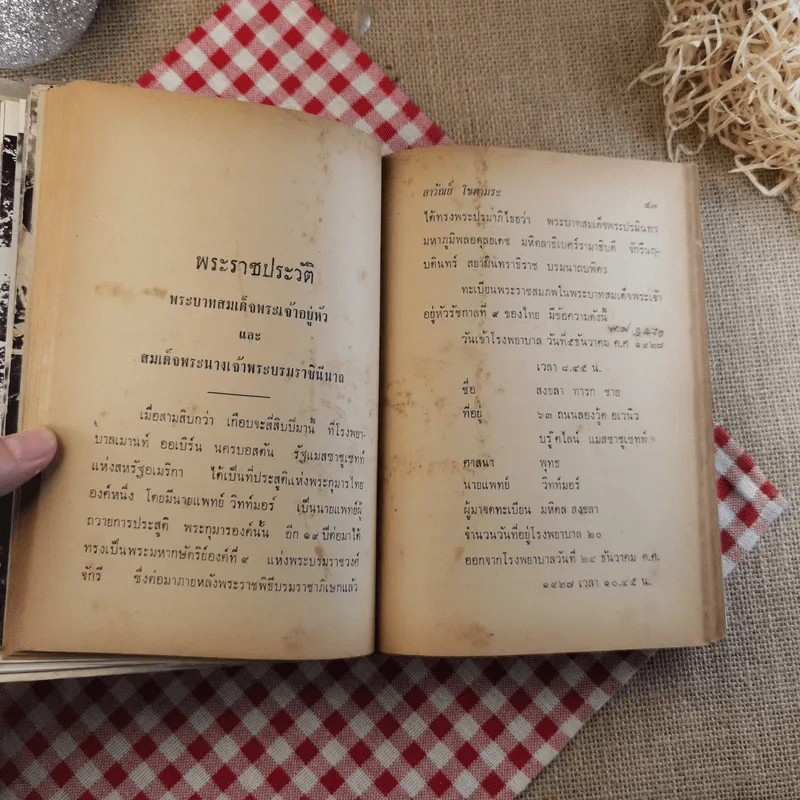 พระราชประวัติ
พระบาทสมเด็จพระเจ้าอยู่หัว
และ
สมเด็จพระนางเจ้าพระบรมราชินีนาถ
เมื่อสามสิบกว่า เกือบจะสี่สิบปีมานี้ ที่โรงพยา-
บาลเมานท์ ออเบิร์น นครบอสตัน รัฐแมสซาชูเซทท์
แห่งสหรัฐอเมริกา ได้เป็นที่ประสูติแห่งพระกุมารไทย
องค์หนึ่ง โดยมีนายแพทย์ วิทท์มอร์ เป็นนายแพทย์ผู้
ถวายการประสูติ พระกุมารองค์นั้น อีก ๑๙ ปีต่อมาได้
ทรงเป็นพระมหากษัตริย์องค์ที่ ๙ แห่งพระบรมราชวงค์
จักรี ซึ่งต่อมาภายหลังพระราชพิธีบรมราชาภิเษกแล้ว
ลาวัณย์ โชตามระ
๕๗
ได้ทรงพระปรมาภิไธยว่า พระบาทสมเด็จพระปรมินทร
มหาภูมิพลอดุลยเดช มหิตลาธิเบศร์รามาธิบดี จักรีนฤ-
บดินทร์ สยามินทราธิราช บรมนาถบพิตร
ทะเบียนพระราชสมภพในพระบาทสมเด็จพระเจ้า
อยู่หัวรัชกาลที่ ๙ ของไทย มีข้อความดังนี้
วันเข้าโรงพยาบาล วันที่๕ธันวาคม ค.ศ ๑๙๒๗
เวลา ๘.๔๕ น.
ชื่อ สงขลา ทารก ชาย
ที่อยู่ ๖๓ ถนนลองวู้ด อเวนิว
บรู๊คไลน์ แมสซาชูเซทท์
ศาสนา พุทธ
นายแพทย์ วิทท์มอร์
ผู้มาจดทะเบียน มหิดล สงขลา
จำนวนวันที่อยู่โรงพยาบาล ๒๐
ออกจากโรงพยาบาลวันที่ ๒๔ ธันวาคม ค.ศ.
๑๙๒๗ เวลา ๑๐.๔๕ น.